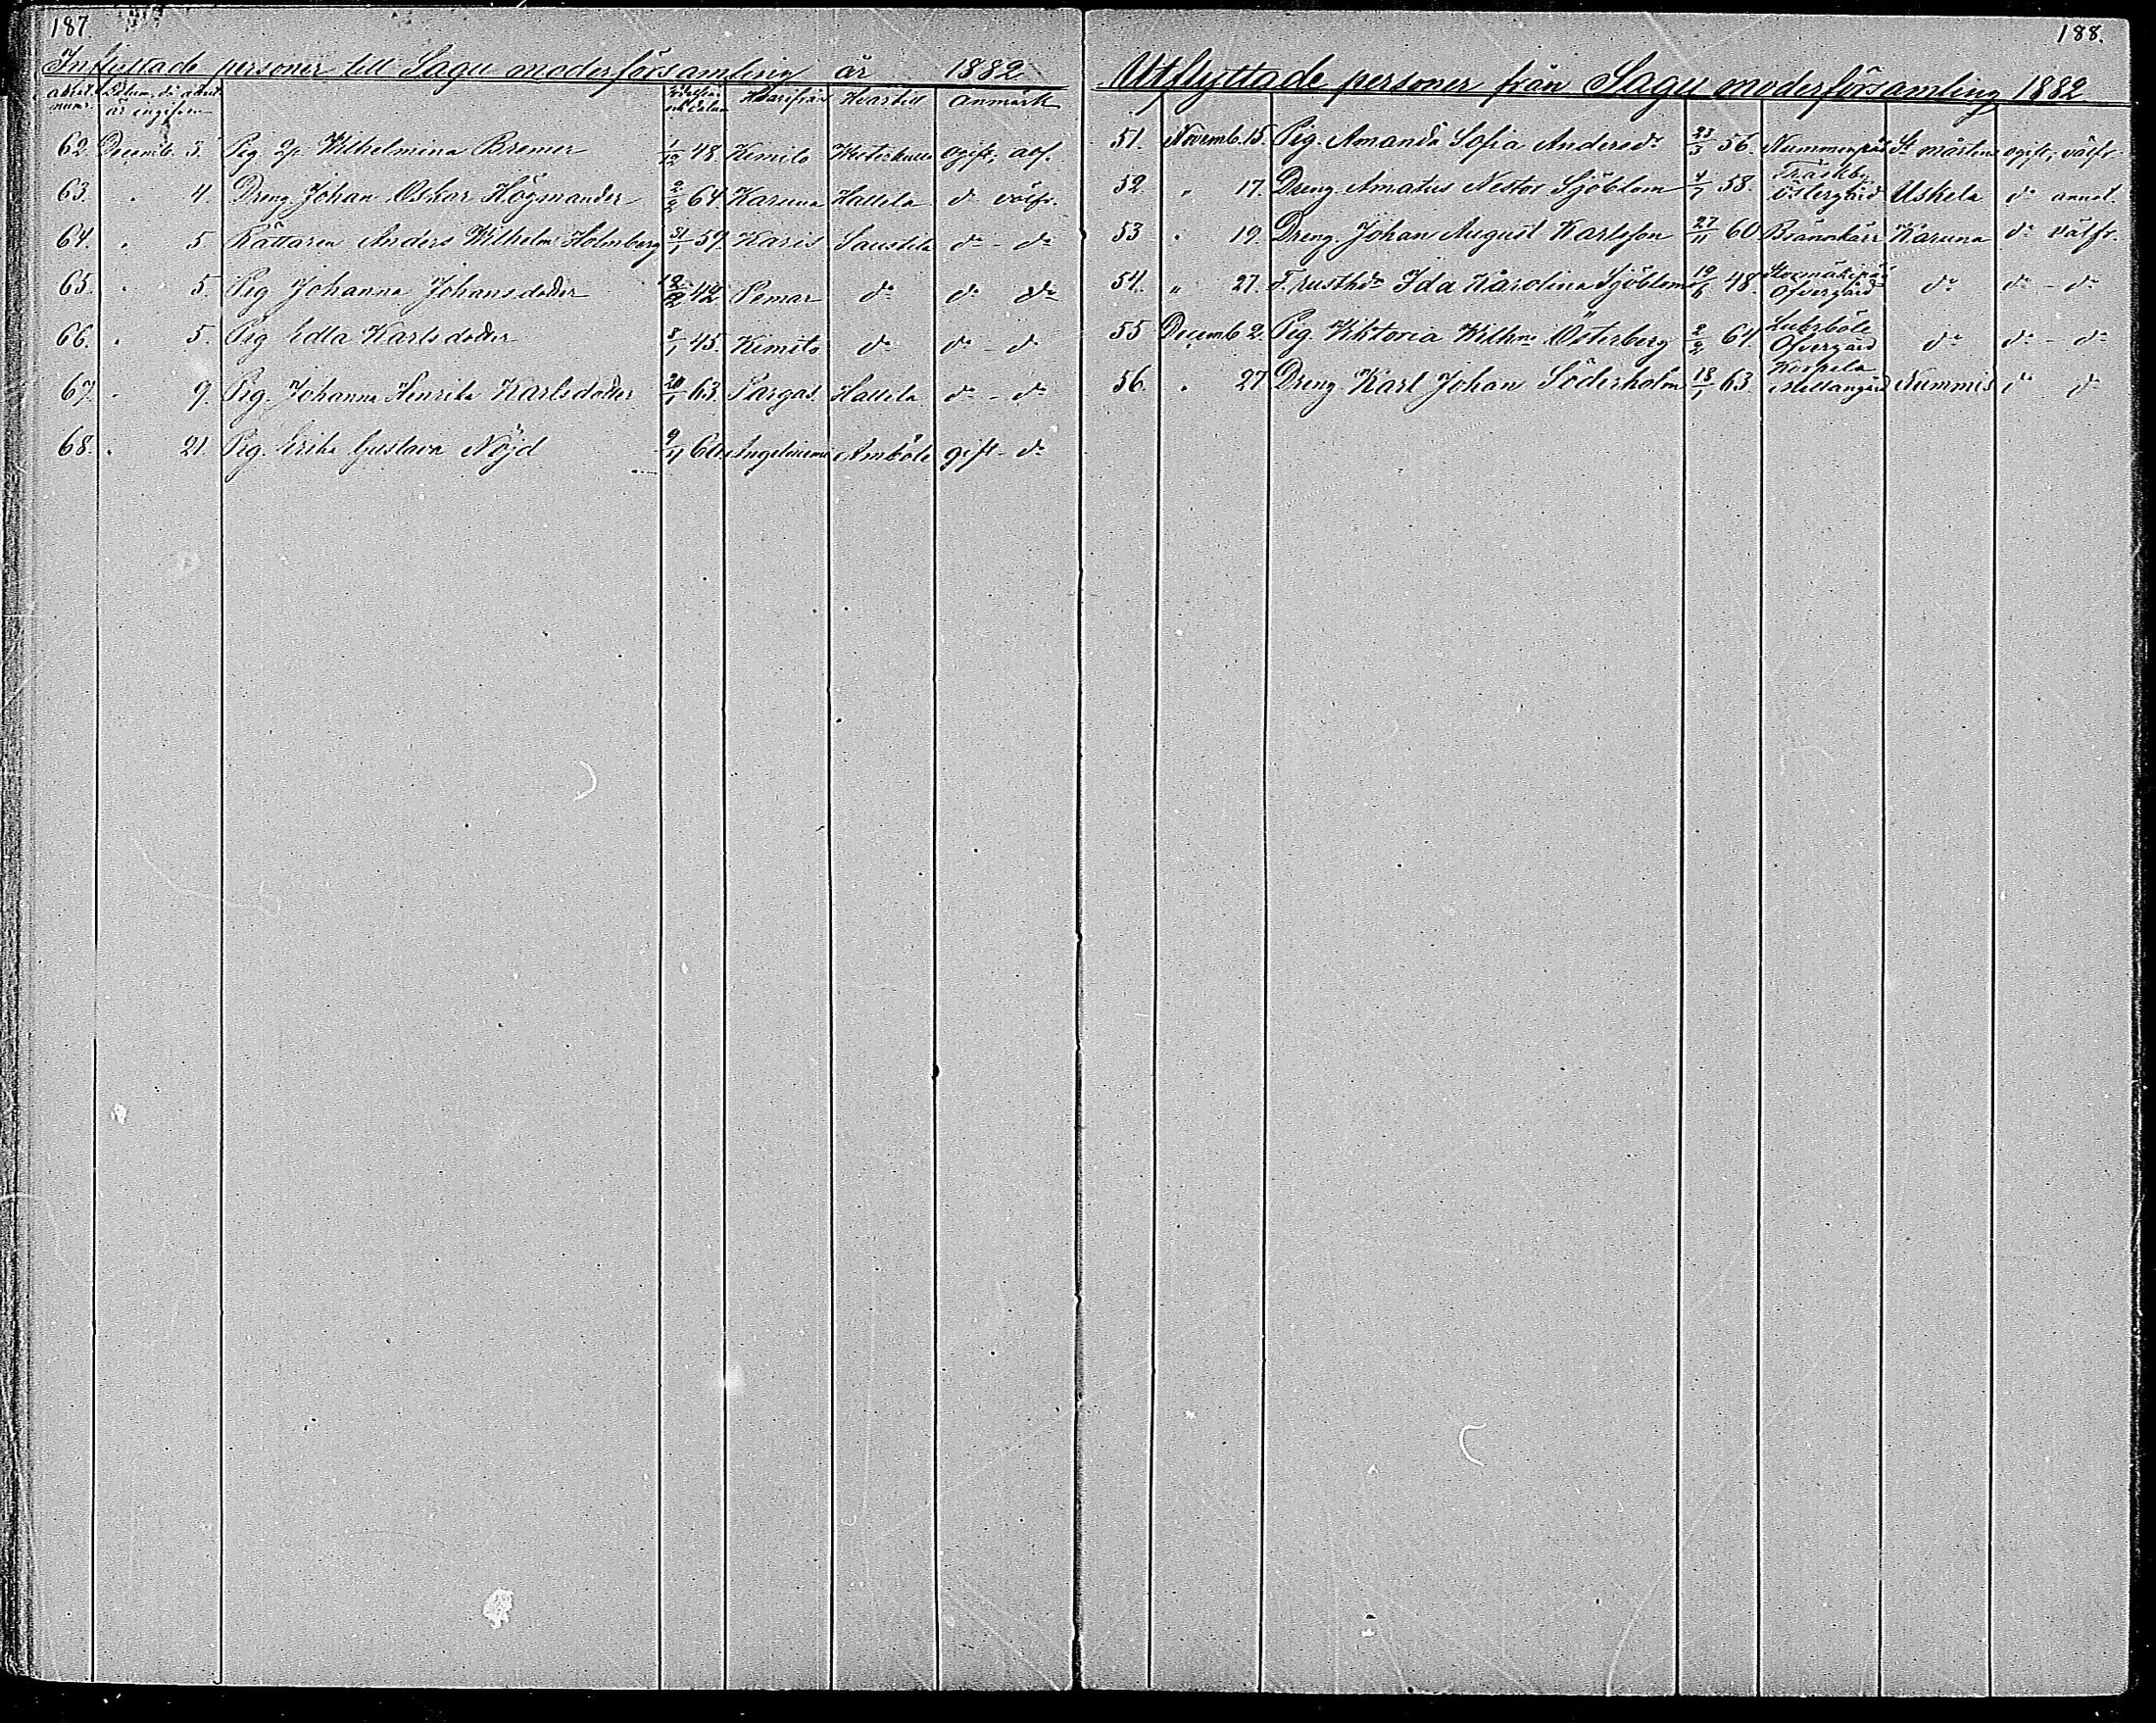 187.
Inflyttade personer till Sagu moderförsamling år 1882
attest. num. Datum, då attest. är ingifven Hvarifrån Hvartill anmärk
62. Decemb. 3. Pig. Wilhelmina Bremer 1/12 48. Kimito Westerkulla ogift, adf.
63. " 4. Dreng Johan Oskar Högmander 2/2 64. Karuna Hallela d:o välfr.
64. " 5 Rättaren Anders Wilhelm Holmberg 31/1 59. Karis Saustila d:o - d:o
65. " 5. Pig Johanna Johansdotter 42 Pemar d:o d:o d:o
66. " 5. Pig Edla Karlsdotter 8/1 45. Kimito d:o d:o - d:o
67. " 9. Pig. Johanna Henrika Karlsdotter 20/1 63. Pargas Hallela d:o - d:o
68. " 21. Pig. Erika Gustava Nöjd 9/11 60 Angelniemi Amböle gift - d:o
188.
Utflyttade personer från Sagu moderförsamling 1882
51. Novemb. 15. Pig. Amanda Sofia Andersd:r 23/3 56. Nummenpää St Mårtens ogift, välfr.
52. " 17. Dreng. Amatus Nestor Sjöblom 4/1 58. Träskby Östergård Uskela d:o annot.
53 " 19. Dreng. Johan August Karlsson 27/11 60 Brännkärr Karuna d:o välfr.
54. " 27. F. rusth:dr Ida Karolina Sjöblom 19/6 48. Ofvergård d:o d:o - d:o
55 Decemb. 2. Pig. Viktoria Wilh:na Österberg 2/2 64. Ofvergård d:o d:o - d:o
56. " 27 Dreng Karl Johan Söderholm 18/1 63. Kospela Mellangård Nummis d:o d:o